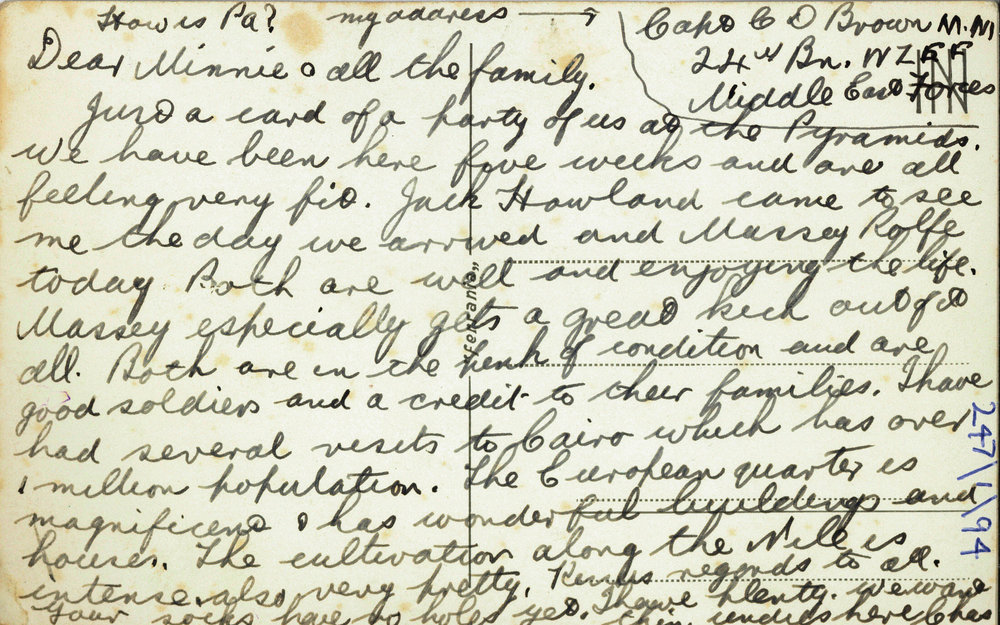 How is Pa? my address → Capt C D Brown M.M
24th Bn. NZEF
Middle East Forces
Dear Minnie & all the family.
Just a card of a party of us at the Pyramids.
We have been here five weeks and are all
feeling very fit. Jack Howland came to see
me the day we arrived and Massey Rolfe
today Both are well and enjoying the life.
Massey especially gets a great kick out of it
all. Both are in the pink of condition and are
good soldiers and a credit to their families. I have
had several visits to Cairo which has over
1 million population. The European quarter is
magnificent & has wonderful buildings and
houses. The cultivation along the Nile is
intense, also very pretty. Kerrus regards to all.
Your socks have no holes yet. I have plenty. We wore
thin undies here
247/1/94